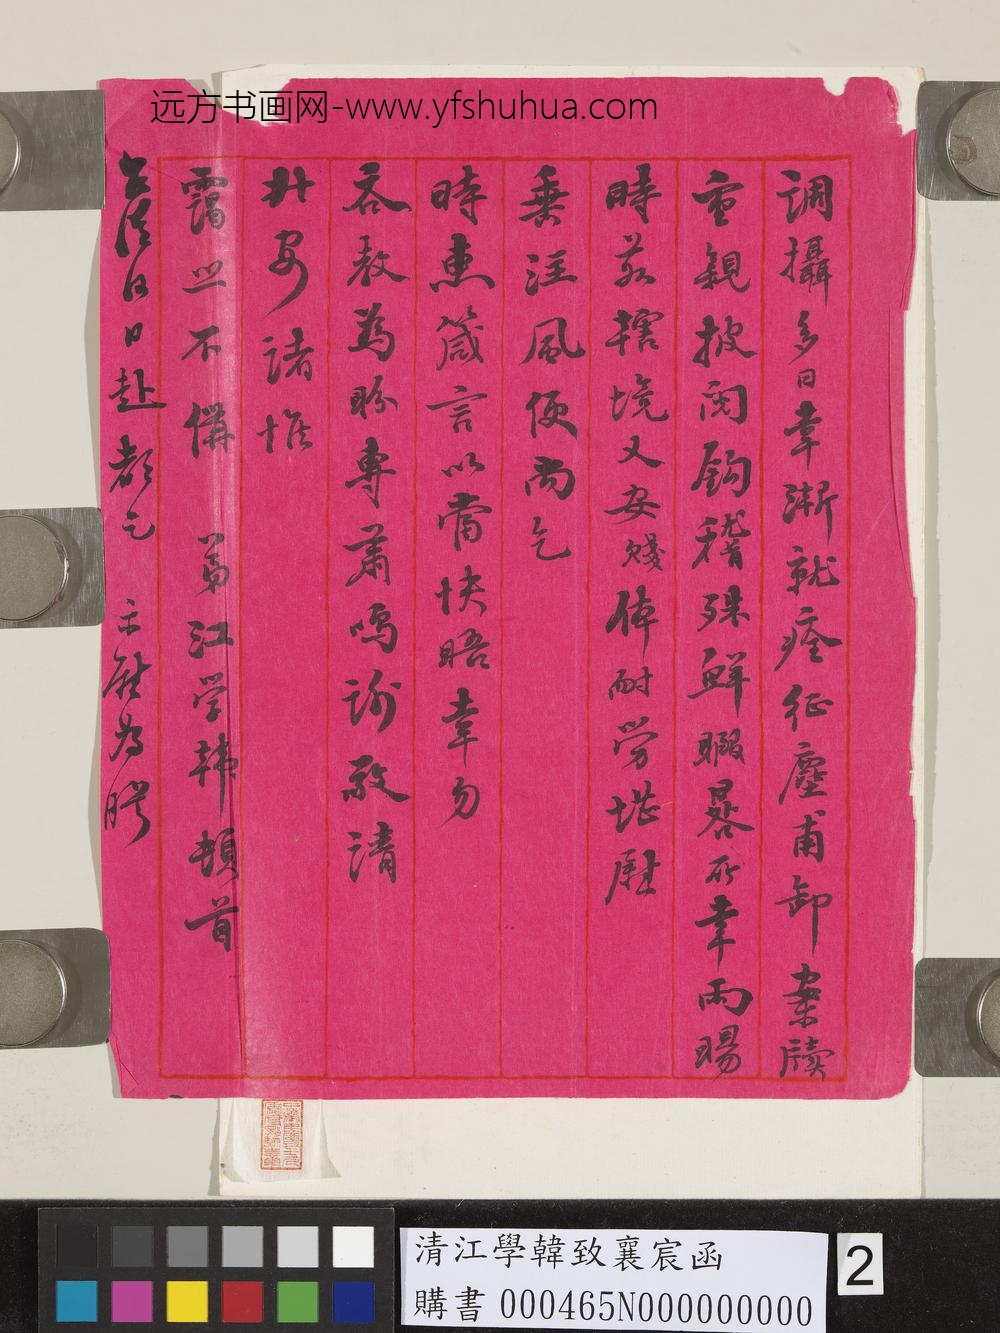 远方书画网-www.yfshuhua.com
調攝多日幸漸就痊征塵甫卸案牘
重親披閱鈎稽殊鮮暇晷所幸雨暘
時若轄境乂安賤体耐勞堪慰
垂注風便尚乞
時惠箴言以當快晤幸勿
吝教為盼專肅鳴謝敬請
升安諸惟
靄照不備 弟江学韩頓首
日赴都乞 示慰為盼
清江學韓致襄宸函
購書 000465N000000000
2